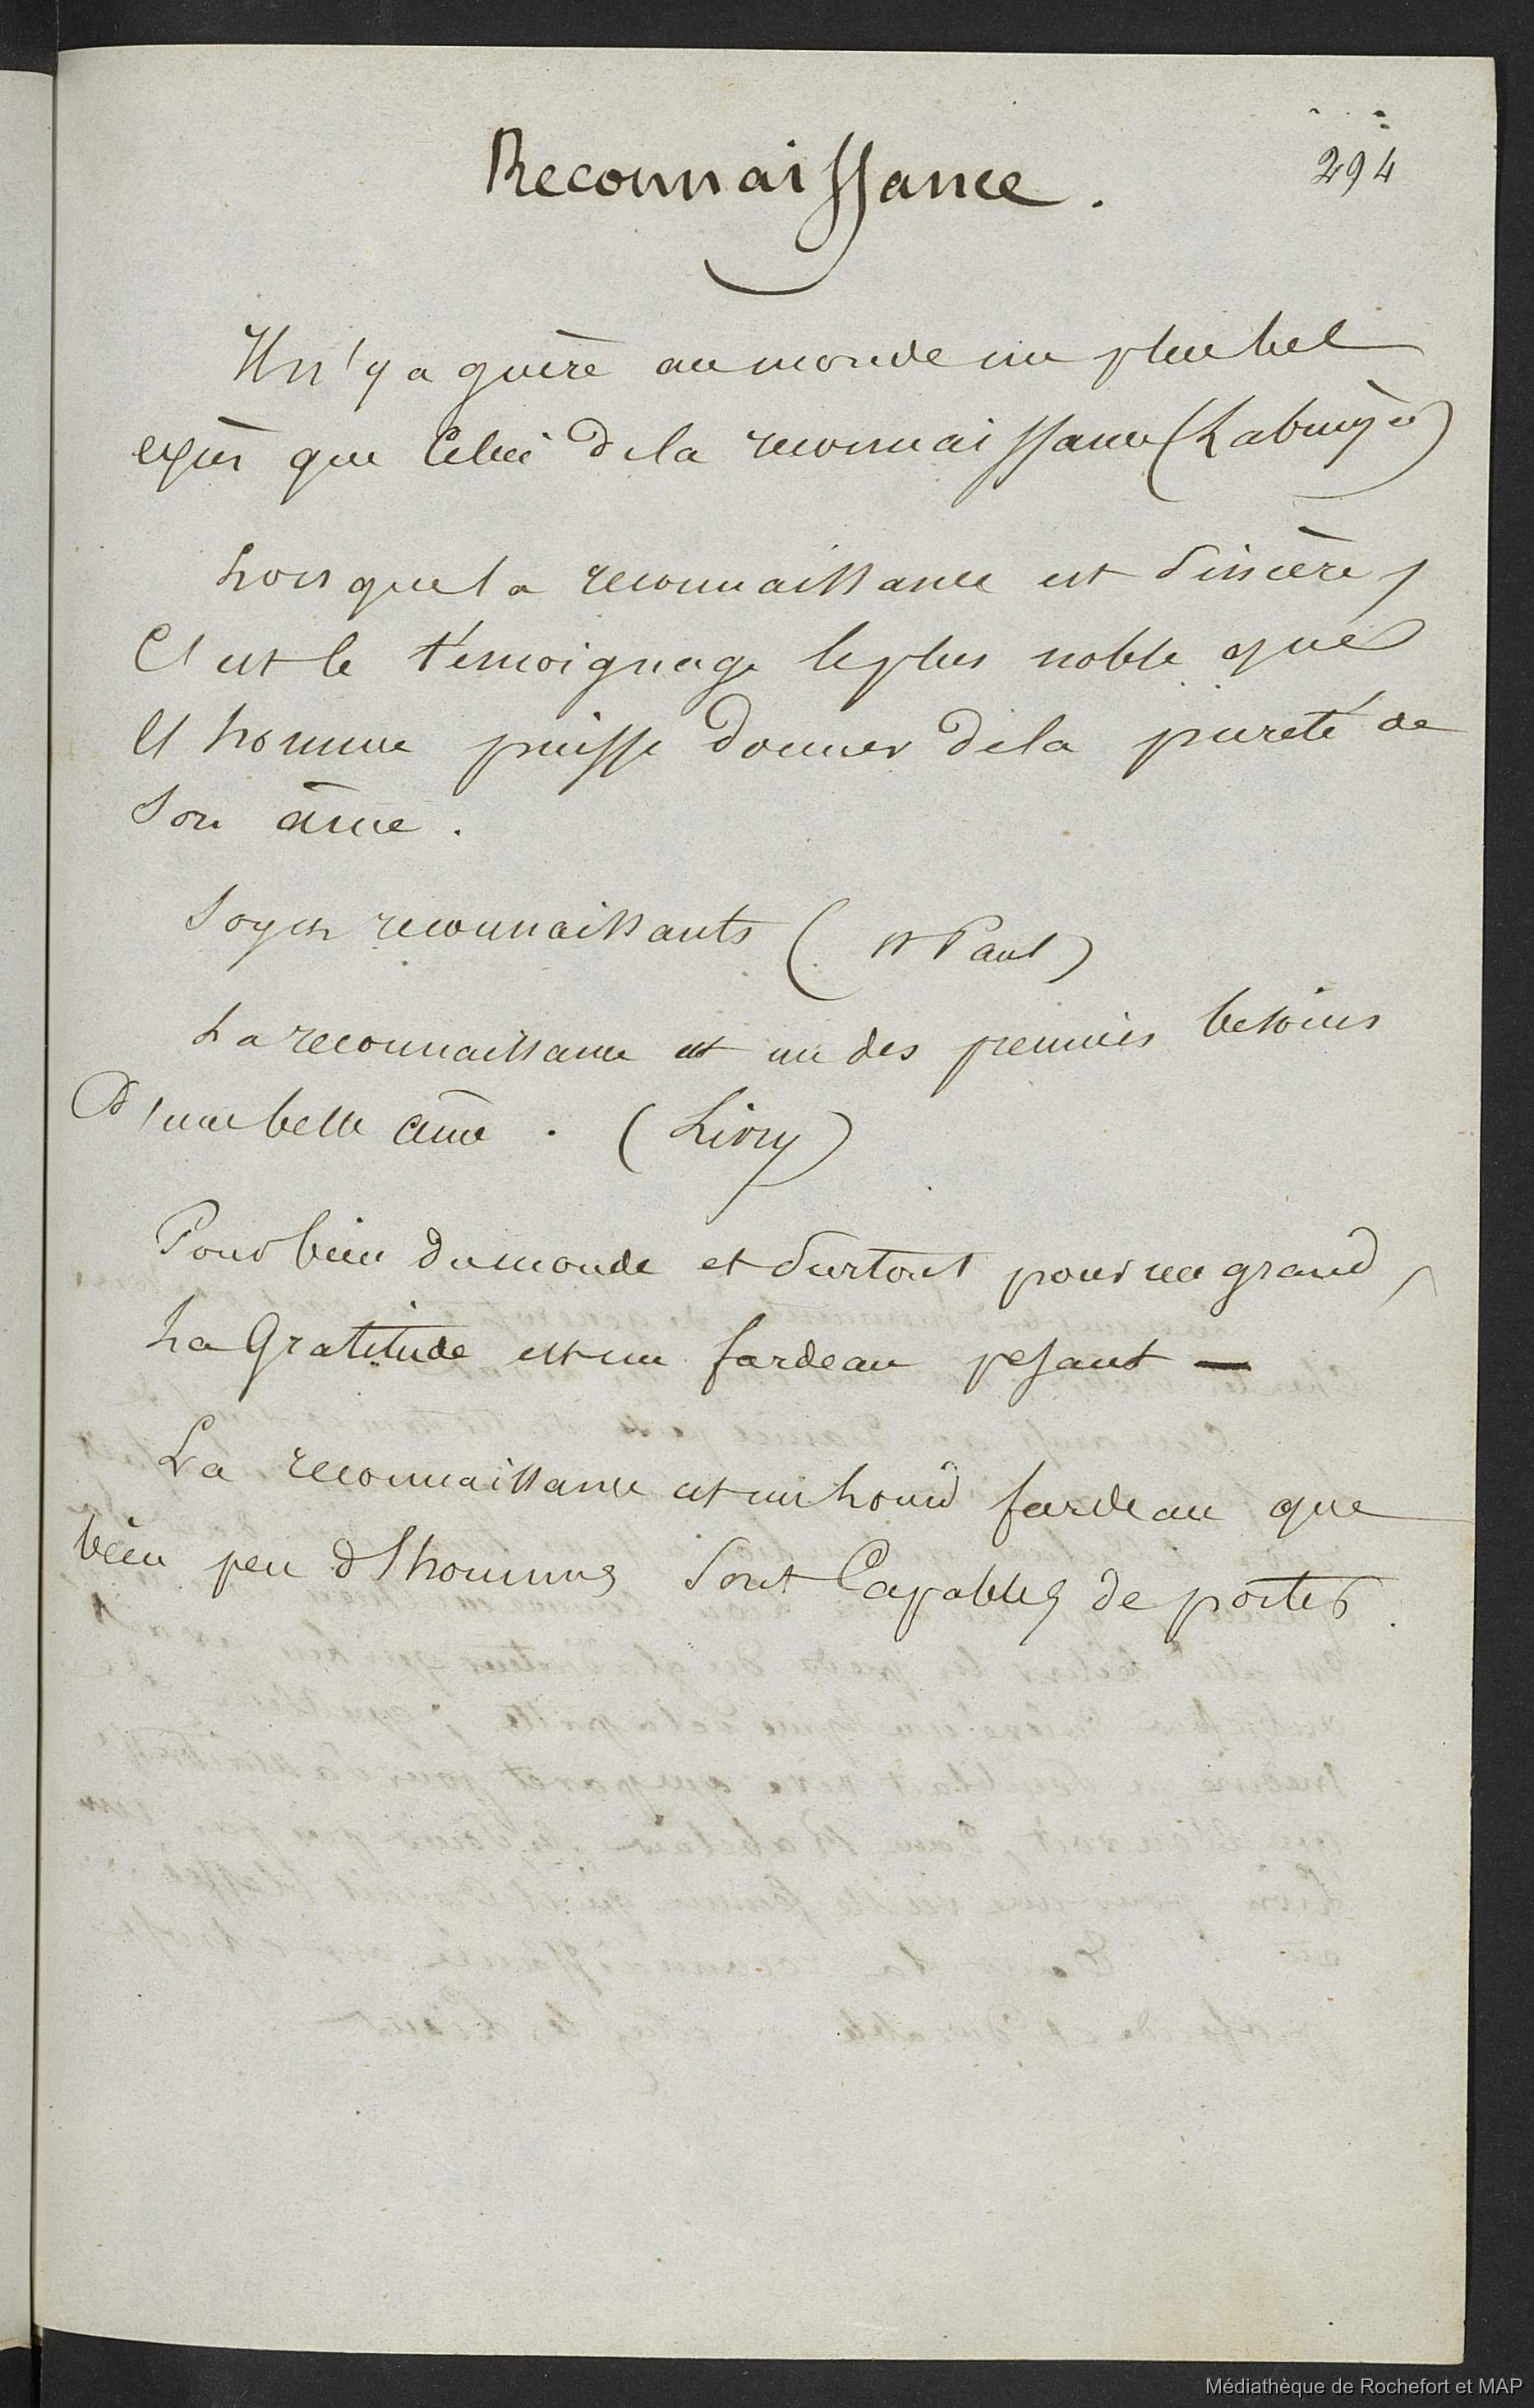 Reconnaissance.
294
Il n'y a guère au monde un plus bel
excès que celui de la reconnaissance (Labruyère)
Lorsque la reconnaissance est sincère,
C'est le témoignage le plus noble que
l'homme puisse donner de la pureté de
son âme.
Soyez reconnaissants (St Paul)
La reconnaissance est un des premiers besoins
d'une belle âme. (Livry)
Pour bien du monde et surtout pour un grand,
La Gratitude est un fardeau pesant —
La reconnaissance est un lourd fardeau que
bien peu d'hommes sont Capables de porter.
Médiathèque de Rochefort et MAP